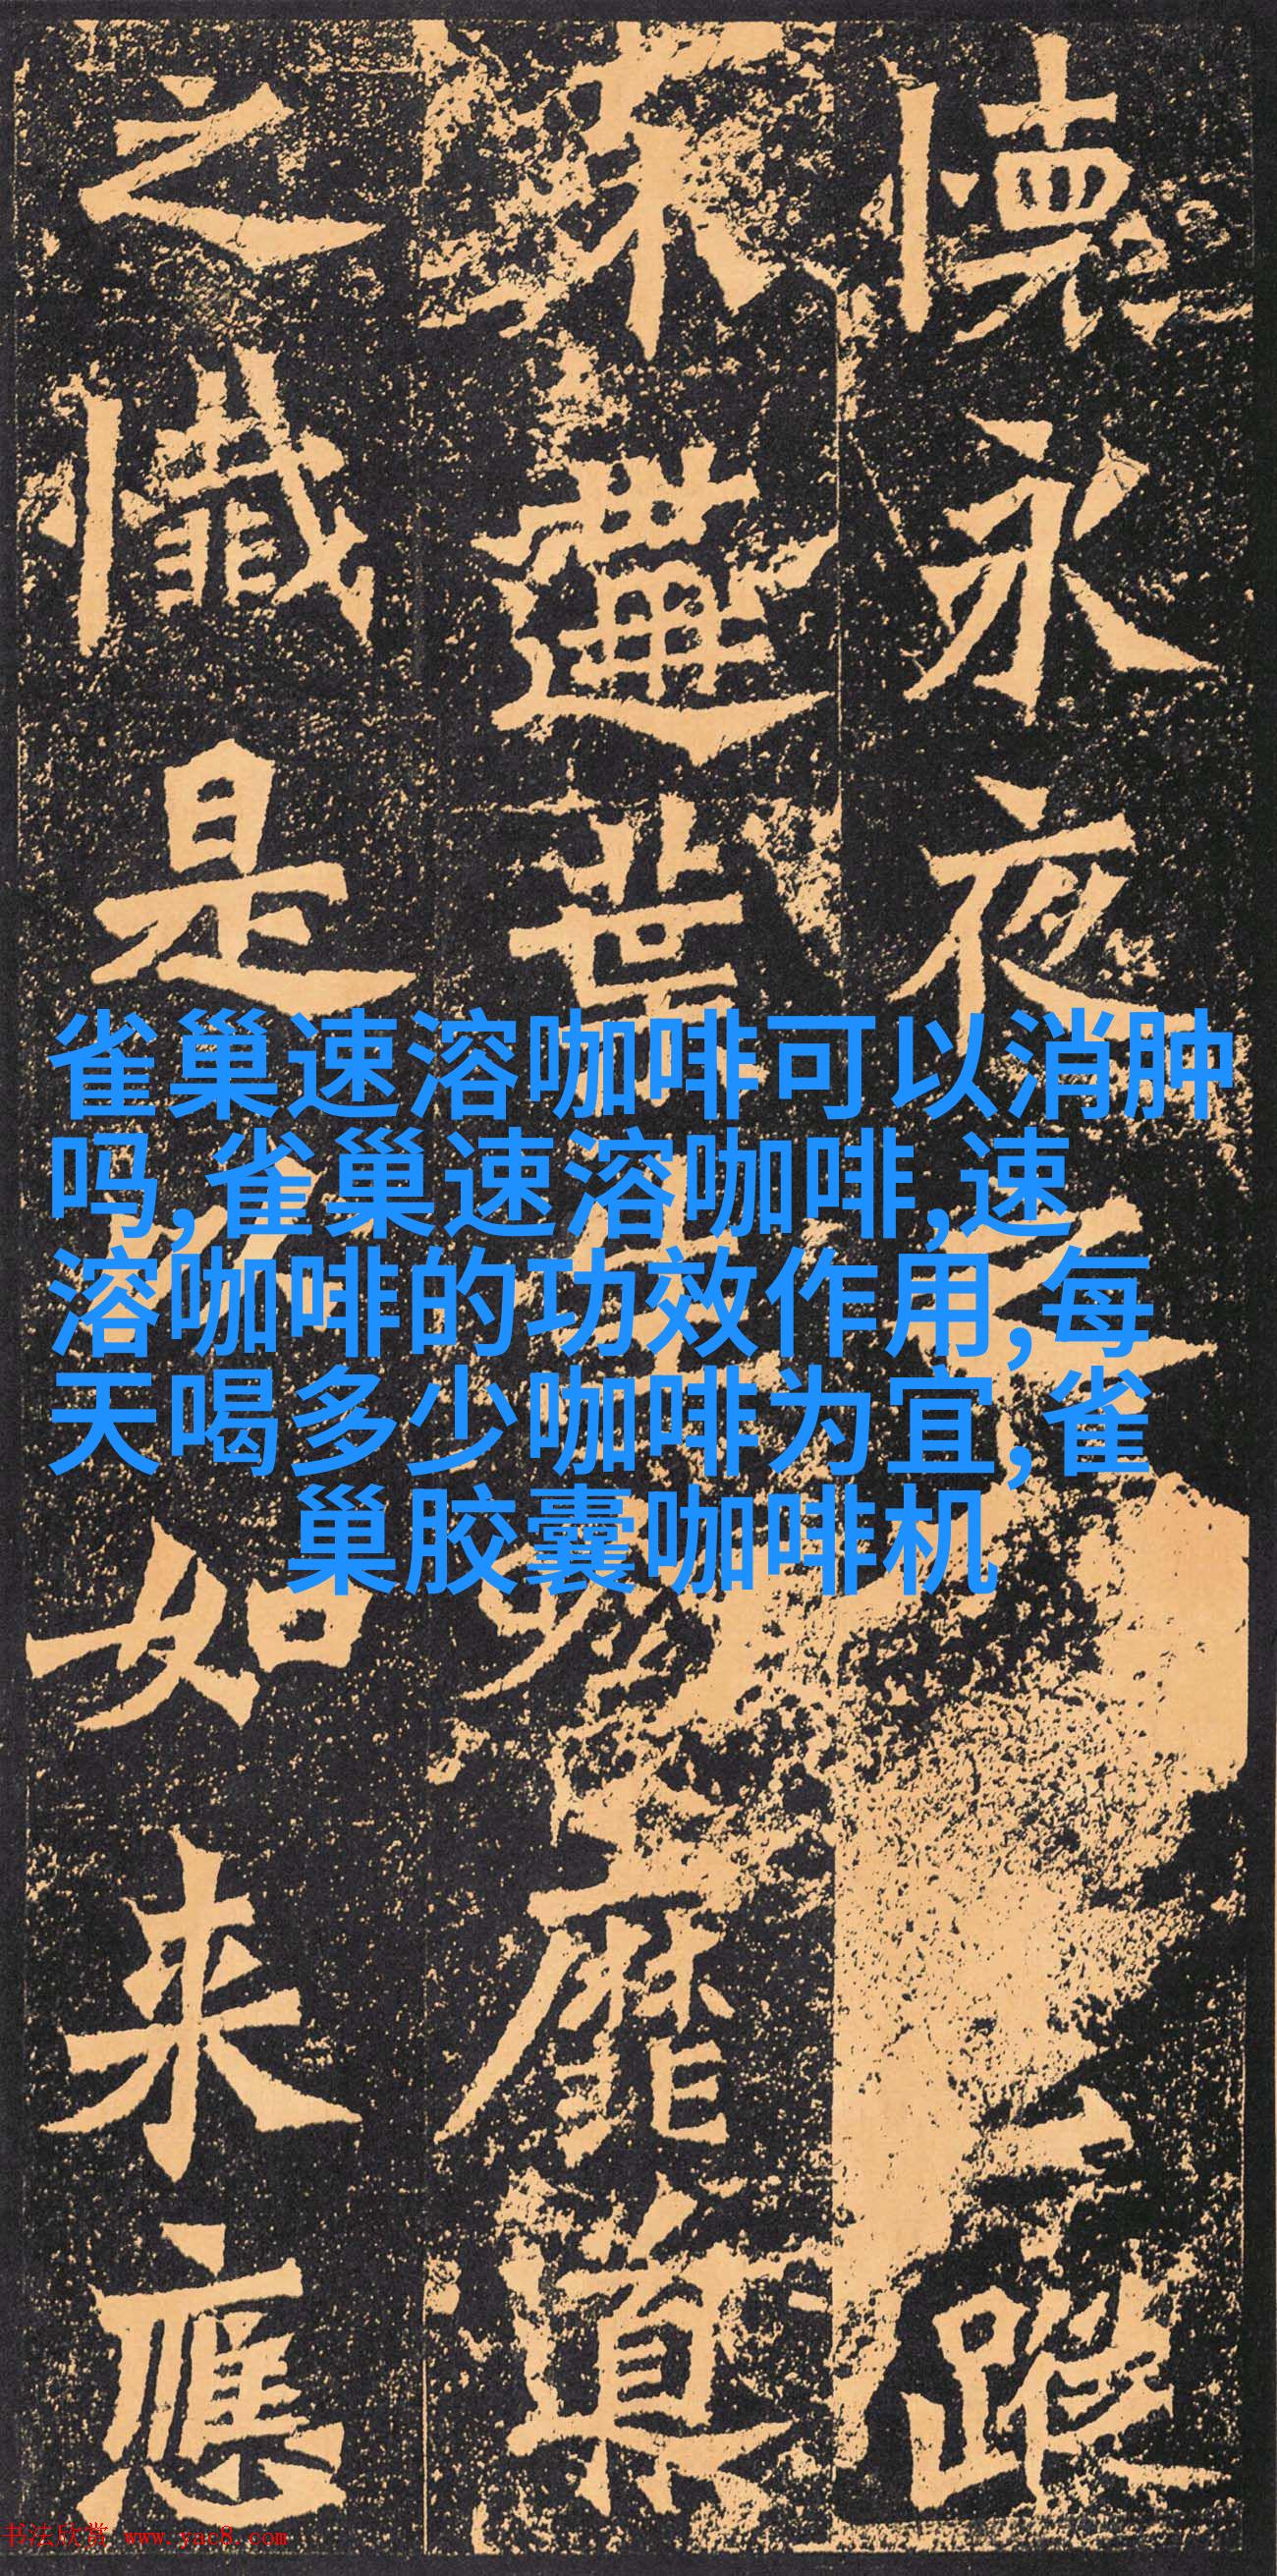 懷永夜
蹤
葉
靡
真
之
懺
是
如
来
應
雀巢速溶咖啡可以消肿
吗,雀巢速溶咖啡,速
溶咖啡的功效作用,每
天喝多少咖啡为宜,雀
巢胶囊咖啡机
书法欣赏 www.yac8.com